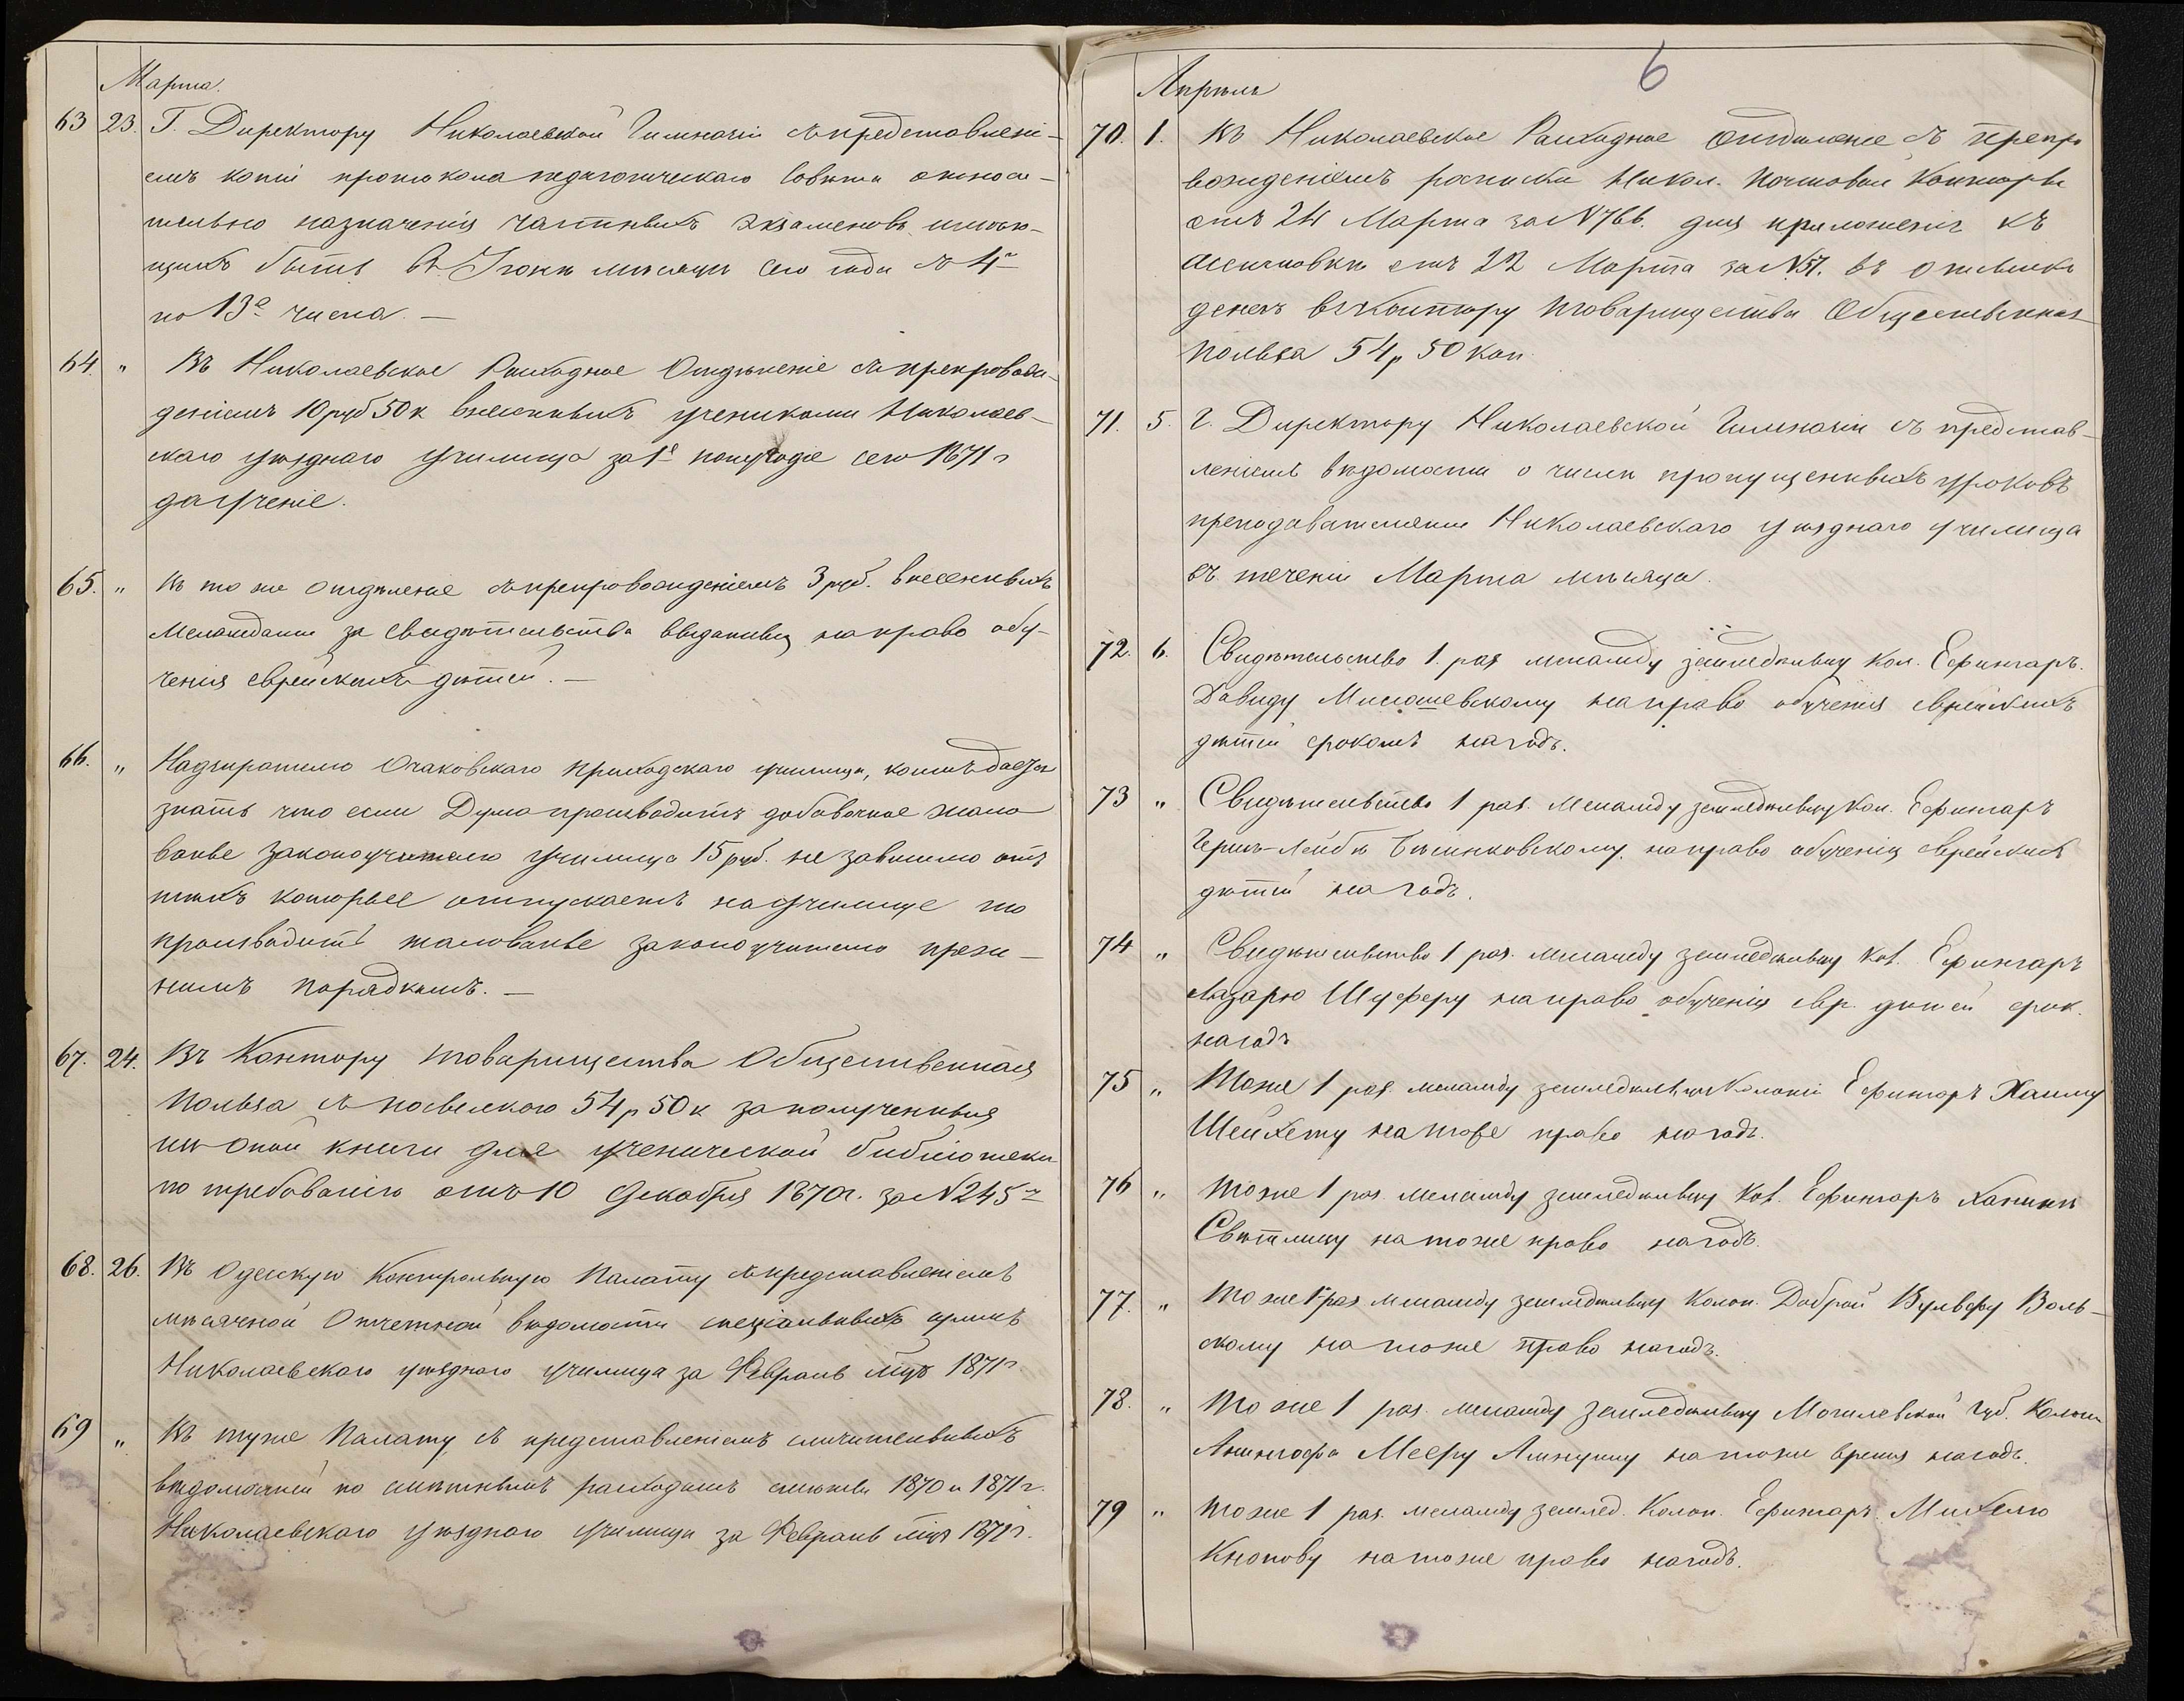 Марта.
63 23. Г. Директору Николаевской Гимназіи съ представлені-
емъ копіи протокола педагогическаго Совѣта относи-
тельно назначенія частныхъ экзаменовъ имѣю-
щихъ быть въ Іюнѣ мѣсяцѣ сего года съ 4го
по 13е число. —
64. " Въ Николаевское Расходное Отдѣленіе съ препровож-
деніемъ 10 руб 50 к внесенныхъ учениками Николаев-
скаго уѣзднаго училища за 1е полугодіе сего 1871 г
за ученіе.
65. " Въ то же отдѣленіе съ препровожденіемъ 3 руб. внесенныхъ
Меламедами за свидѣтельства выданныя на право обу-
ченія еврейскихъ дѣтей. —
66. " Надзирателю Очаковскаго приходскаго училища, коимъ дается
знать что если Дума производитъ добавочное жало
ванье законоучителю училища 15 руб. не зависимо отъ
тѣхъ которые отпускаетъ на училище то
производить жалованье законоучителю преж-
нимъ порядкомъ. —
67. 24. Въ Контору товарищества Общественная
Польза съ посылкою 54 р 50 к за полученныя
изъ оной книги для ученической библіотеки
по требованію отъ 10 Декабря 1870 г. за № 245мъ
68. 26. Въ Одесскую Контрольную Палату съ представленіемъ
мѣсячной отчетной вѣдомости спеціальныхъ суммъ
Николаевскаго уѣзднаго училища за Февраль мѣц 1871 г.
69 " Въ туже Палату съ представленіемъ сличительныхъ
вѣдомостей по смѣтнымъ расходамъ смѣты 1870 и 1871 г.
Николаевскаго уѣзднаго училища за Февраль мѣц 1871 г.
6
Апрѣль
70. 1. Въ Николаевское Расходное Отдѣленіе съ препро
вожденіемъ росписки Никол. Почтовой Конторы
отъ 24 Марта за № 766. для приложенія къ
ассигновкѣ отъ 22 Марта за № 57. въ отсылкѣ
денегъ въ контору товарищества Общественная
Польза 54 р 50 коп.
71. 5. Г. Директору Николаевской Гимназіи съ представ-
леніемъ вѣдомости о числѣ пропущенныхъ уроковъ
преподавателями Николаевскаго уѣзднаго училища
въ теченіи Марта мѣсяца.
72. 6. Свидѣтельство 1. раз меламеду земледѣльцу кол. Ефингаръ.
Давиду на право обученія еврейскихъ
дѣтей срокомъ на годъ.
73 " Свидѣтельство 1 раз. меламеду земледѣльцу кол. Ефингаръ
Герш-Лейбѣ на право обученія еврейскихъ
дѣтей на годъ.
74 " Свидѣтельство 1 раз. меламеду земледѣльцу кол. Ефингаръ
Лазарю Шуферу на право обученія евр. дѣтей срок.
на годъ
75 " Тоже 1 раз. меламеду земледѣльцу колоніи Ефингаръ Хаиму
Шейхету на тоже право на годъ.
76 " Тоже 1 раз. меламеду земледѣльцу кол. Ефингаръ
Свѣтлицу на тоже право на годъ.
77. " Тоже 1 раз меламеду земледѣльцу колон. Доброй Вульфу Воль-
скому на тоже право на годъ.
78. " Тоже 1 раз. меламеду земледѣльцу Могилевской губ.
Мееру на тоже время на годъ.
79 " Тоже 1 раз. меламеду землед. колон. Ефингаръ. Михелю
Кнопову на тоже право на годъ.